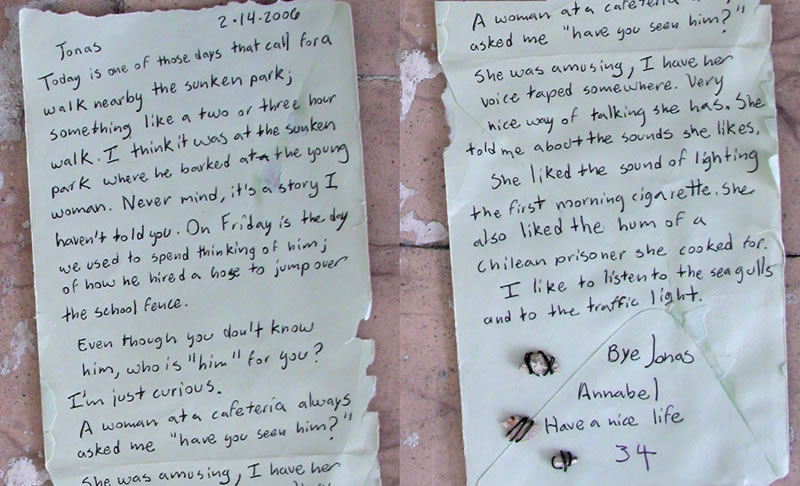 2·14·2006
Jonas
Today is one of those days that call for a
walk nearby the sunken park;
something like a two or three hour
walk. I think it was at the sunken
park where he barked at the young
woman. Never mind, it's a story I
haven't told you. On Friday is the day
we used to spend thinking of him;
of how he hired a hose to jump over
the school fence.
Even though you don't know
him, who is "him" for you?
I'm just curious.
A woman at a cafeteria always
asked me "have you seen him?"
She was amusing, I have her
A woman at a cafeteria
asked me "have you seen him?"
She was amusing, I have her
voice taped somewhere. Very
nice way of talking she has. She
told me about the sounds she likes.
She liked the sound of lighting
the first morning cigarette. She
also liked the hum of a
Chilean prisoner she cooked for.
I like to listen to the seagulls
and to the traffic light.
Bye Jonas
Annabel
Have a nice life
34